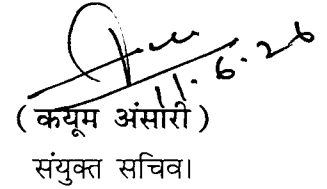 11.6.26
(कयूम अंसारी)
संयुक्त सचिव।